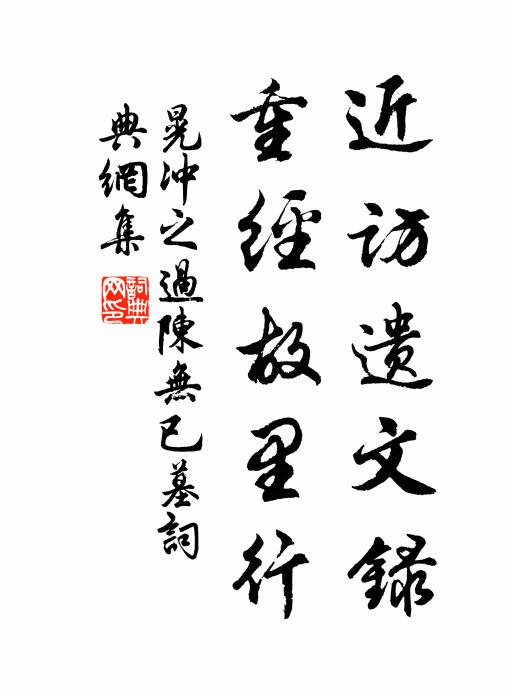 近訪遺文錄
重經故里行
晁沖之過陳無已墓詞
典網集
詞典
网印